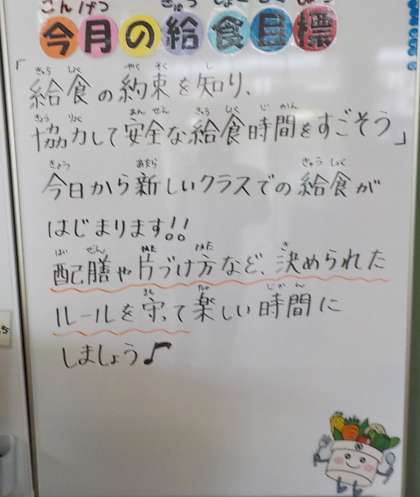 今月の給食目標
「給食の約束を知り、
協力して安全な給食時間をすごそう」
今日から新しいクラスでの給食が
はじまります!!
配膳や片づけ方など、決められた
ルールを守って楽しい時間に
しましょう♪